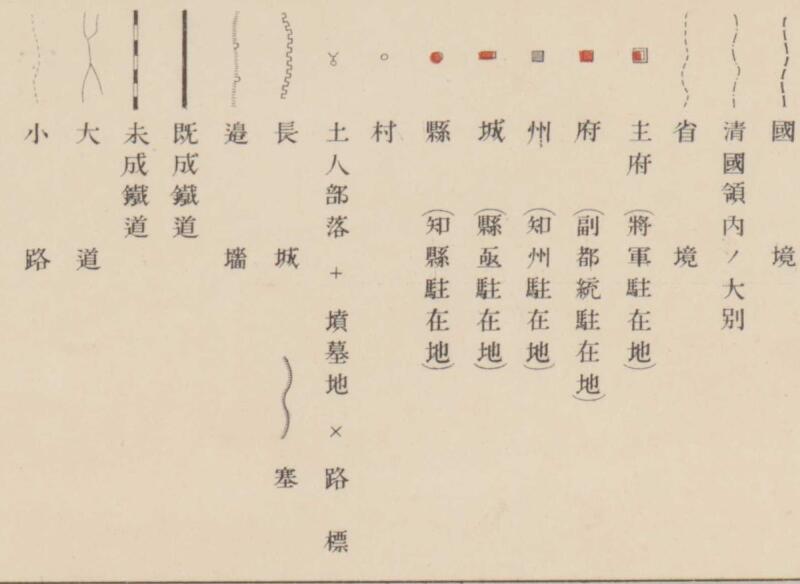 國境
清國領内ノ大別
省境
主府(將軍駐在地)
府(副都統駐在地)
州(知州駐在地)
城(縣丞駐在地)
縣(知縣駐在地)
村
土人部落 + 墳墓地 × 路標
長城 塞
邊墻
既成鐵道
未成鐵道
大道
小路